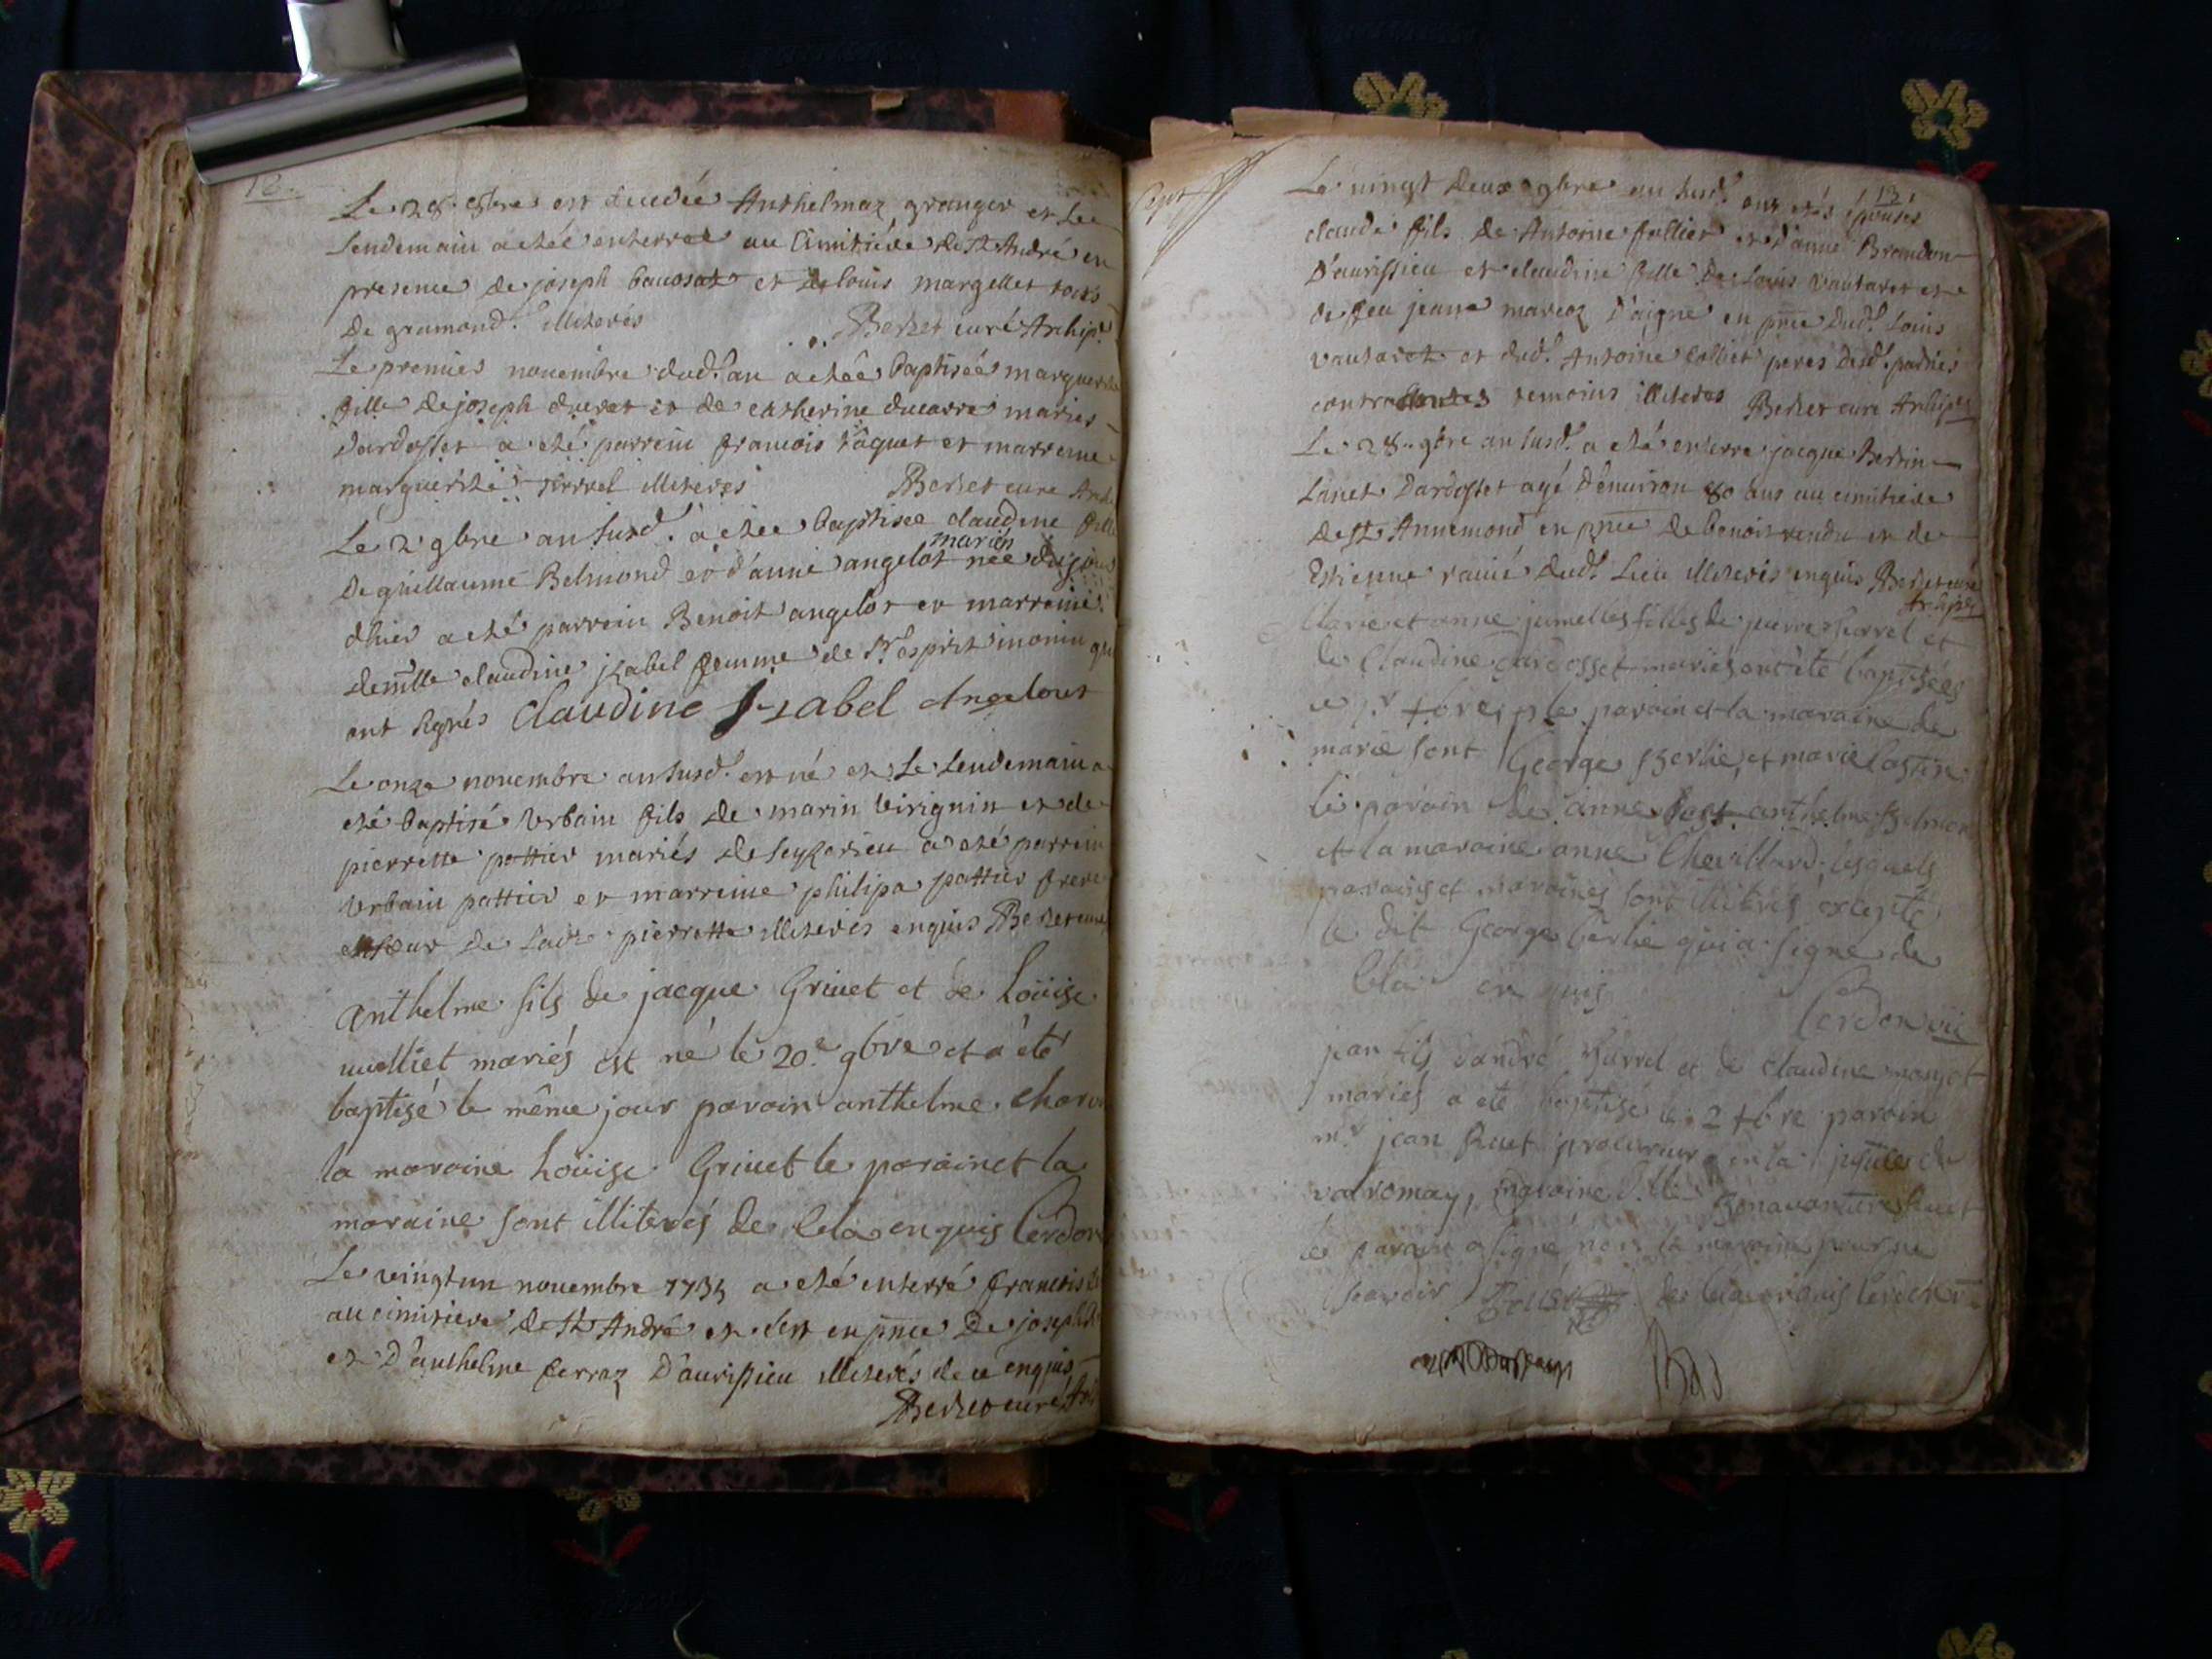 12
Le 28. 8bre est decedée Anthelmaz granger et Le
Lendemain a etée enterrée au Cimitiére de St André en
presence de joseph baucosat et de louis margellet tous
de gramond. illiterés Berzet curé Archip.
Le premier novembre dud. an a etée baptisée marguerite
fille de joseph ducret et de catherine ducarre mariés
dardosset a eté parrein francois vaquet et marreine
marguerite tirrel illiteres Berzet cure Arch
Le 2 9bre an susd. a étée baptisée claudine fille
mariés
de guillaume Belmond et d'anne angelot née du jour
dhier a eté parrein Benoit angelot et marreine
demlle claudine jzabel femme de Sr esprit monin qui
ont signés Claudine Jzabel Angelout
Le onze novembre an susd. est né et Le Lendemain a
eté baptisé Urbain fils de marin Virignin et de
pierrette pottier mariés de seyzerieu a eté parrein
Urbain pottier et marreine philipa pottier frere
et soeur de Lad. pierrette illiterés enquis Berzet curé
anthelme fils de jacque Grivet et de Loüise
mariés est né le 20.e 9bre et a été
baptisé le même jour parain anthelme
la maraine Loüise Grivet le parain et la
maraine sont illiterés de cela enquis Cerdon
Le vingtun novembre 1735 a eté enterré francois
au cimitiere de St André et c'est en pnce de joseph
et D'anthelme ferraz D'aurissieu illiterés de ce enquis
Berzet curé Ar
13
Le vingt deux 9bre an susd. ont etés épousés
claude fils de Antoine follier et d'anne Brandon
D'aurissieu et claudine fille de Louis vautaret et
de feu jeane marcoz D'aigne en pnce dud. Louis
vautaret et dud. Antoine peres desd. parties
contractantes temoins illiteres Berzet cure Archip
Le 28. 9bre an susd. a eté enterré jacque Bertin
Lanet Dardosset agé d'environ 80 ans au cimitiere
de St Annemond en pnce de benoit rendu et de
Estienne ravié dud. Lieu illiterés enquis Berzet curé
Archip
Marie et anne jumelles filles de pierre tirrel et
de Claudine dardosset mariés ont été baptisées
ce 1.r xbre, le parain et la maraine de
marie sont George Berlie, et marie
le parain de anne est anthelme Belmon
et la maraine anne Chevillard. lesquels
parains et maraines sont illiterés excepté
le dit George berlie qui a signé de
cela enquis
Cerdon vic
jean fils d'andré tirrel et de claudine monjot
mariés a eté baptisé le 2 xbre parain
m.r jean Ruet procureur en la justice de
valromay, maraine d.lle Bonaventure Ruet
le parain a signé non la maraine pour ne
scavoir de cela enquis Cerdon vic